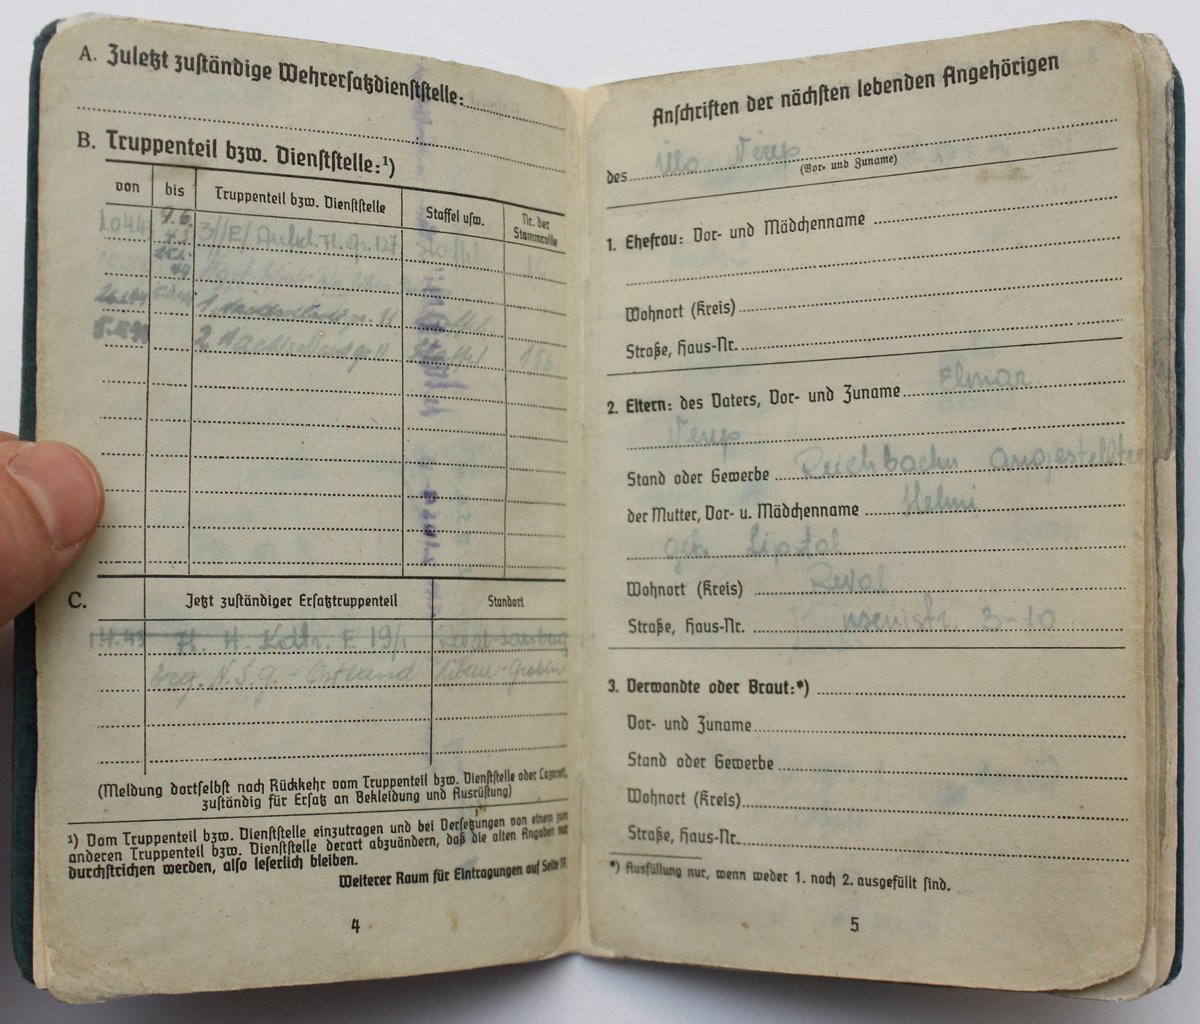 A. Zuletzt zuständige Wehrersatzdienststelle:
B. Truppenteil bzw. Dienststelle:¹)
von bis Truppenteil bzw. Dienststelle Staffel usw. Nr. der Stammrolle
9.6. 3//E/ Aufkl. Fl. Gr. 127 Staffel 10
2 Staffel 156
C. Jetzt zuständiger Ersatztruppenteil Standort
E 19/
N.S.G. - Ostland Libau-Grobin
(Meldung dortselbst nach Rückkehr vom Truppenteil bzw. Dienststelle oder Lazarett,
zuständig für Ersatz an Bekleidung und Ausrüstung)
¹) Vom Truppenteil bzw. Dienststelle einzutragen und bei Versetzungen von einem zum
anderen Truppenteil bzw. Dienststelle derart abzuändern, daß die alten Angaben nur
durchstrichen werden, also leserlich bleiben.
Weiterer Raum für Eintragungen auf Seite 17.
4
Anschriften der nächsten lebenden Angehörigen
des
(Vor- und Zuname)
1. Ehefrau: Vor- und Mädchenname
Wohnort (Kreis)
Straße, Haus-Nr.
2. Eltern: des Vaters, Vor- und Zuname Elmar
Stand oder Gewerbe Reichbachn angestellter
der Mutter, Vor- u. Mädchenname Helmi
geb. Lipstal
Wohnort (Kreis) Reval
Straße, Haus-Nr. 3-10
3. Verwandte oder Braut:*)
Vor- und Zuname
Stand oder Gewerbe
Wohnort (Kreis)
Straße, Haus-Nr.
*) Ausfüllung nur, wenn weder 1. noch 2. ausgefüllt sind.
5